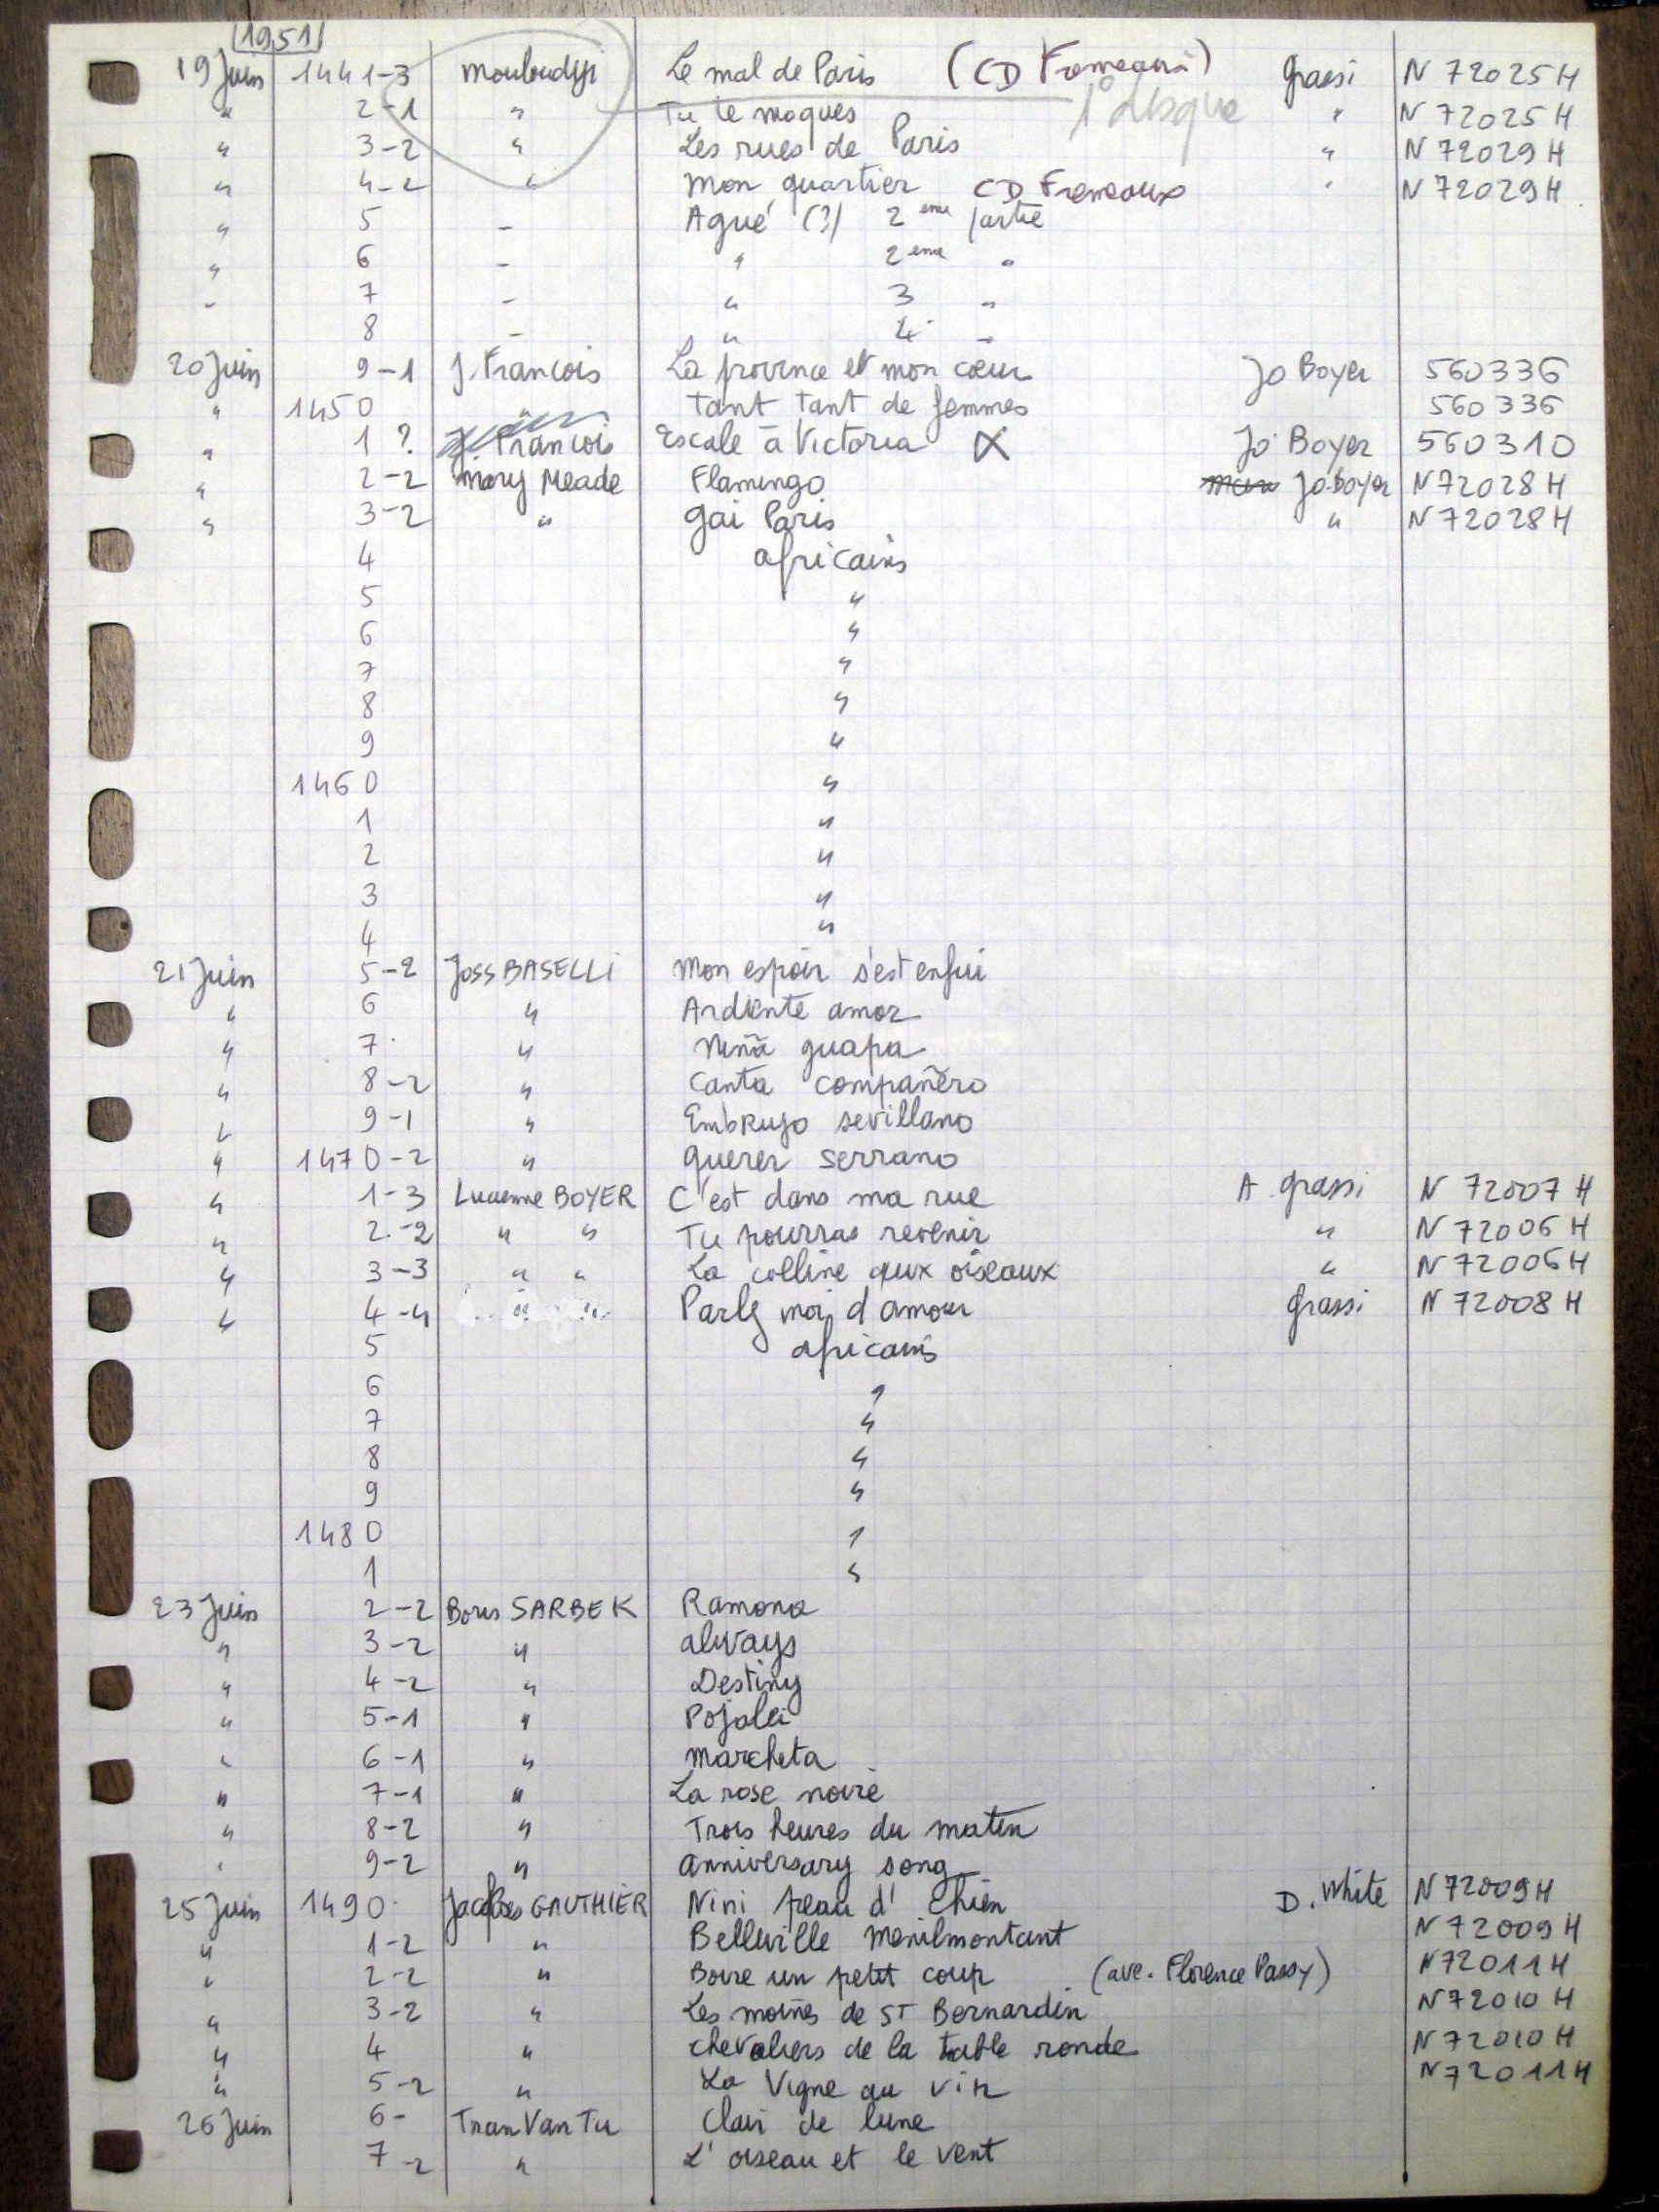 1951
19 Juin 1441-3 Mouloudji Le mal de Paris (CD Fremeaux) Grassi N 72025 H
" 2-1 " Tu te moques 1° disque " N 72025 H
" 3-2 " Les rues de Paris " N 72029 H
" 4-2 " Mon quartier CD Fremeaux " N 72029 H
" 5 - Agué (?) 2 eme partie
" 6 - " 2 eme "
- 7 - " 3 "
8 - " 4 "
20 Juin 9-1 J. Francois La province et mon cœur Jo Boyer 560336
" 1450 tant tant de femmes 560336
" 1 ? J Francois Escale à Victoria X Jo Boyer 560310
" 2-2 Mary Meade Flamingo Jo Boyer N 72028 H
" 3-2 " Gai Paris " N 72028 H
4 africains
5 "
6 "
7 "
8 "
9 "
1460 "
1 "
2 "
3 "
4 "
21 Juin 5-2 Joss BASELLI Mon espoir s'est enfui
" 6 " Ardiente amor
" 7 " Niña guapa
" 8-2 " Canta compañero
" 9-1 " Embrujo sevillano
" 1470-2 " Querer serrano
" 1-3 Lucienne BOYER C'est dans ma rue A. Grassi N 72007 H
" 2-2 " " Tu pourras revenir " N 72006 H
" 3-3 " " La colline aux oiseaux " N 72006 H
" 4-4 Parlez moi d'amour Grassi N 72008 H
5 africains
6 "
7 "
8 "
9 "
1480 "
1 "
23 Juin 2-2 Boris SARBEK Ramona
" 3-2 " always
" 4-2 " Destiny
" 5-1 " Pojalei
" 6-1 " Marcheta
" 7-1 " La rose noire
" 8-2 " Trois heures du matin
" 9-2 " anniversary song
25 Juin 1490 Jacques GAUTHIER Nini peau d'chien D. White N 72009 H
" 1-2 " Belleville Menilmontant N 72009 H
" 2-2 " Boire un petit coup (ave. Florence Passy) N 72011 H
" 3-2 " Les moines de ST Bernardin N 72010 H
" 4 " chevaliers de la table ronde N 72010 H
" 5-2 " La Vigne au vin N 72011 H
26 Juin 6- Tran Van Tu Clair de lune
7-2 " L'oiseau et le vent